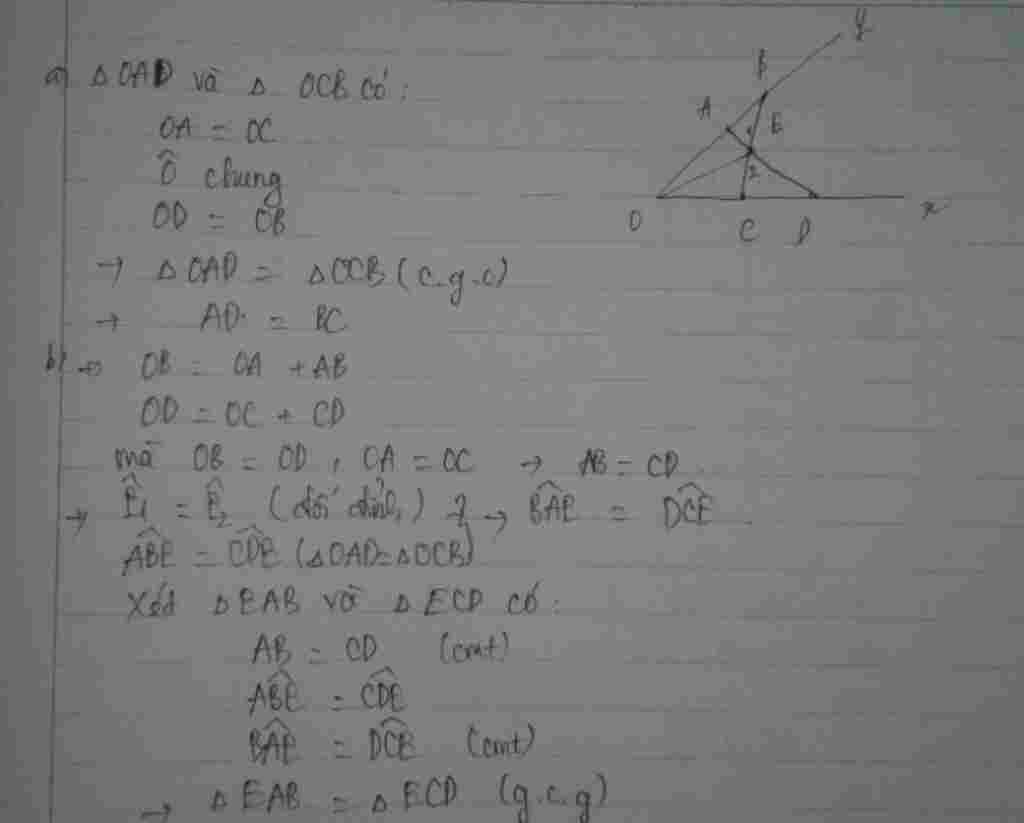 a) △OAD và △ OCB có:
OA = OC
Ô chung
OD = OB
→ △OAD = △OCB (c.g.c)
→ AD = BC
b) → OB = OA + AB
OD = OC + CD
mà OB = OD, OA = OC → AB = CD
→ Ê₁ = Ê₂ (đối đỉnh) } → BÂE = DĈE
AB̂E = CD̂E (△OAD=△OCB)
Xét △EAB và △ECD có:
AB = CD (cmt)
AB̂E = CD̂E
BÂE = DĈE (cmt)
→ △EAB = △ECD (g.c.g)
y
B
A
1
E
2
O
C
D
x